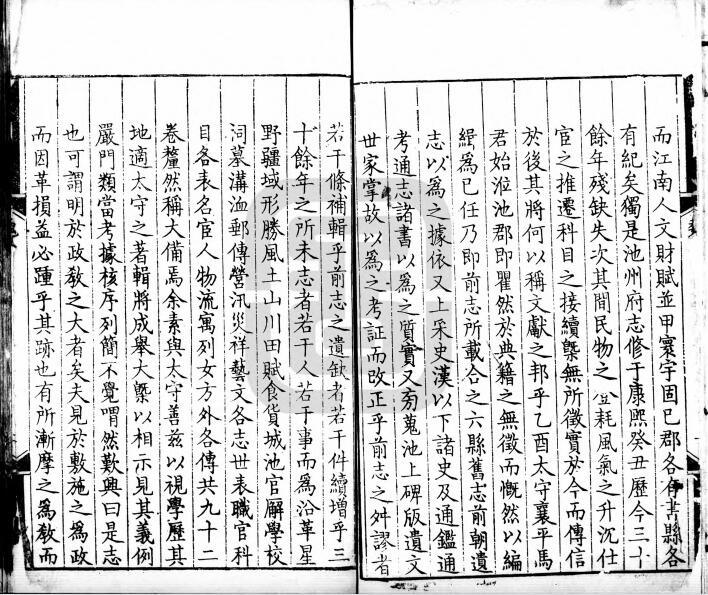 而江南人文財賦並甲寰宇固已郡各有書縣各
有紀矣獨是池州府志修于康熙癸丑歷今三十
餘年殘缺失次其間民物之登耗風氣之升沉仕
宦之推遷科目之接續槩無所徵實於今而傳信
於後其將何以稱文獻之邦乎乙酉太守襄平馬
君始涖池郡即瞿然於典籍之無徵而慨然以編
緝為已任乃即前志所載合之六縣舊志前朝遺
志以為之據依又上采史漢以下諸史及通鑑通
考通志諸書以為之質實又旁蒐池上碑版遺文
世家掌故以為之考証而改正乎前志之舛謬者
若干條補輯乎前志之遺缺者若干件續增乎三
十餘年之所未志者若干人若于事而為沿革星
野疆域形勝風土山川田賦食貨城池官廨學校
祠墓溝洫郵傳營汛災祥藝文各志世表職官科
目各表名宦人物流寓列女方外各傳共九十二
卷釐然稱大備焉余素與太守善兹以視學歷其
地適太守之著輯將成舉大槩以相示見其義例
嚴門類當考據核序列簡不覺喟然歎興曰是志
也可謂明於政教之大者矣夫見於敷施之為政
而因革損益必踵乎其跡也有所漸摩之為教而